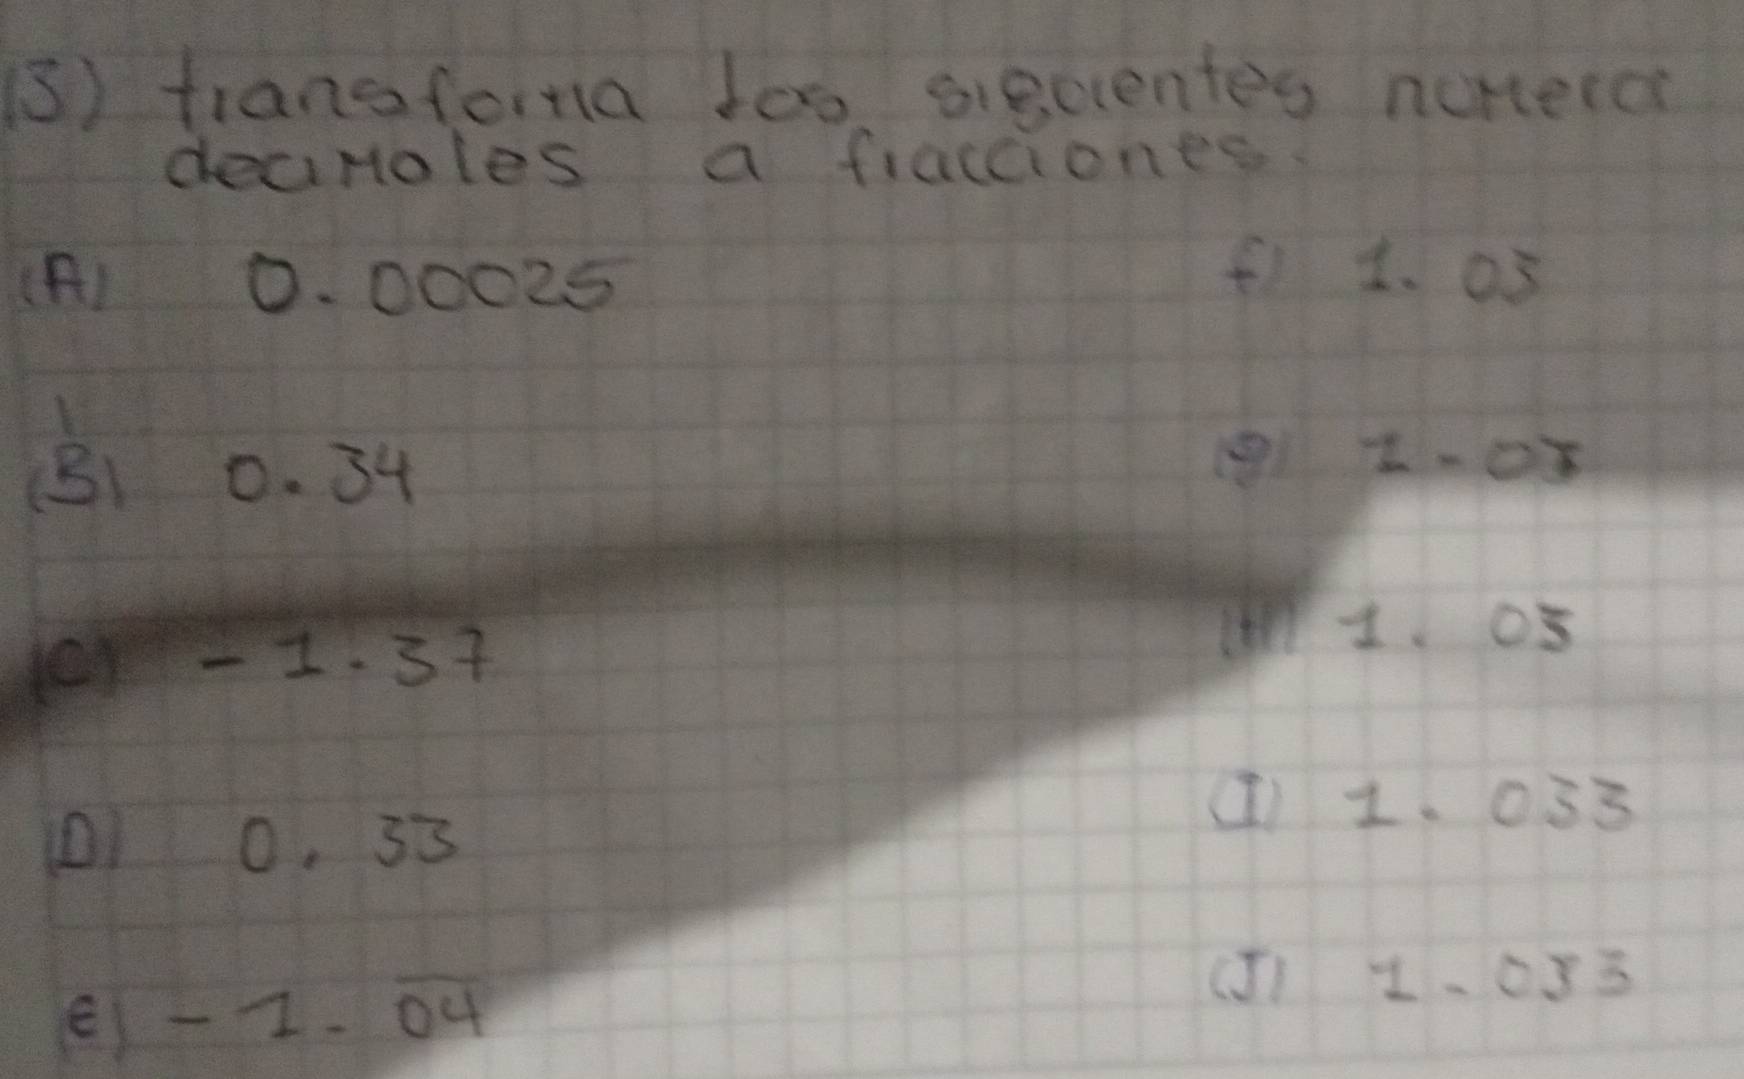 (3) transforma los siguientes numero
decimales a fracciones.
(A) 0.00025
f) 1.03
(B) 0.34
(g) 1.03
(C) -1.37
(H) 1.03
(D) 0.33
(I) 1.033
(E) -1.0̅4̅
(J) 1.033